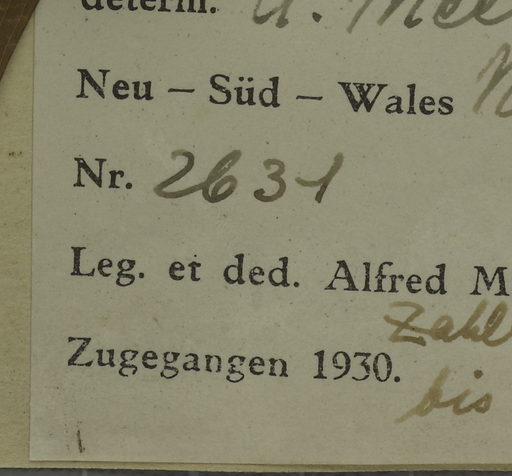 determ. A. Mee
Neu – Süd – Wales
Nr. 2631
Leg. et ded. Alfred M
Zahl
Zugegangen 1930.
bis